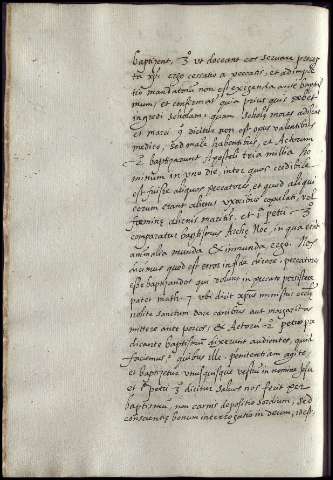 baptizent, 3º vt doceant eos seruare præcep
ta xpi. ergo cessatio a peccatis, et adimple
tio mandatorū non est exigenda ante baptis
mum, et confirmat quia prius quis debet
ingredi scholam, quam scholæ mores addiscat
et marci 2 dicitur non est opus valentibus
medico, sed male habentibus, et Actorum
2 baptizarunt apostoli tria millia ho
minum in vno die, inter quos credibile
est fuisse aliquos peccatores, et quod aliqui
eorum erant alienis vxoribus copulati, vel
fœminæ alienis maritis, et 1ª petri 3º
comparatur baptismus Archæ Noe, in qua erāt
animalia munda et inmunda ergo. Nos
dicimus quod est error in fide dicere, peccatores
esse baptizandos qui volunt in peccato persistere
patet math. 7 vbi dicit xpus
nolite sanctum dare canibus aut margaritas
mittere ante porcos, et Actorū 2º petro præ
dicante baptismū dixerunt audientes, quid
faciemus, quibus ille, penitentiam agite
et baptizetur vnusquisque vestrū in nomine Jesu
et 1ª petri 3º dicitur saluos nos fecit per
baptismū, non carnis depositio sordium, sed
conscientiæ bonum interrogatio in deum, id est